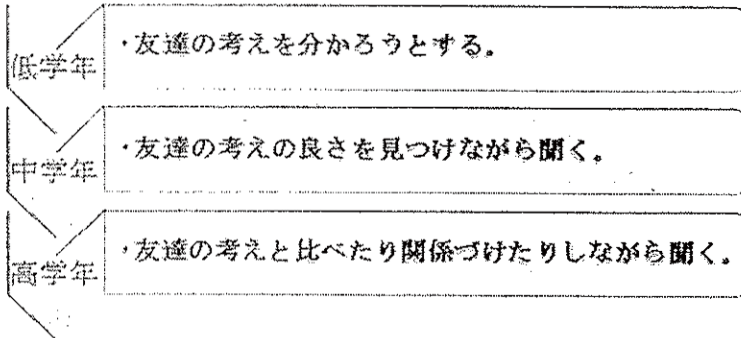 低学年
・友達の考えを分かろうとする。
中学年
・友達の考えの良さを見つけながら聞く。
高学年
・友達の考えと比べたり関係づけたりしながら聞く。